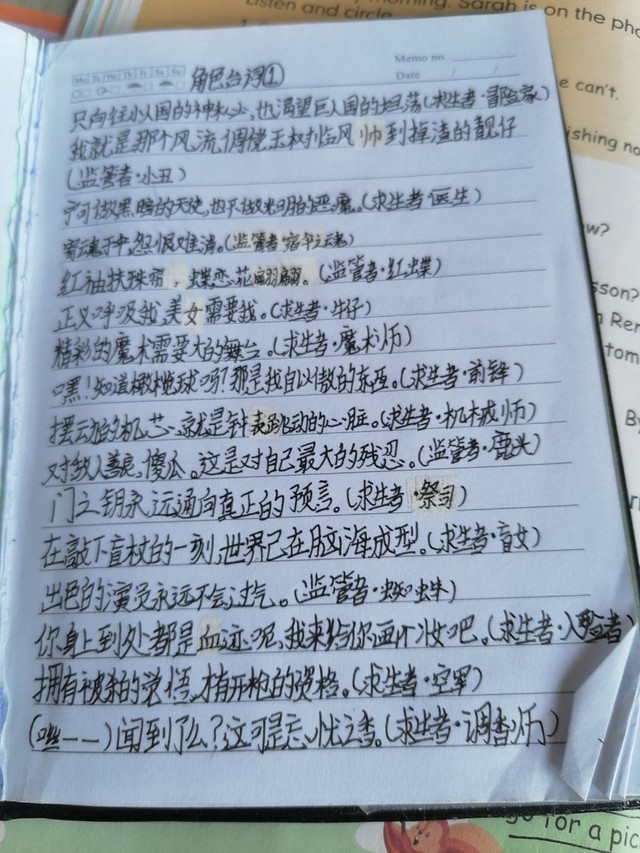 Listen and circle
Sarah is on the pho
e can't.
ishing no
w?
sson?
Ren
tom
By
go for a pic
Memo no.
Mo Tu We Th Fr Sa Su
Date / /
角色台词①
只向往小人国的神秘,也渴望巨人国的坦荡(求生者·冒险家)
我就是那个风流倜傥玉树临风帅到掉渣的靓仔
(监管者·小丑)
宁可做黑暗的天使,也不做光明的恶魔。(求生者·医生)
寄魂于伞,怨恨难消。(监管者·宿伞之魂)
红袖扶珠帘,蝶恋花翩翩。(监管者·红蝶)
正义呼吸我,美女需要我。(求生者·牛仔)
精彩的魔术需要大的舞台。(求生者·魔术师)
嘿!知道橄榄球吗?那是我自以傲的东西。(求生者·前锋)
摆动的机芯,就是钟表跳动的心脏。(求生者·机械师)
对敌人善良,傻瓜。这是对自己最大的残忍。(监管者·鹿头)
门之钥永远通向真正的预言。(求生者·祭司)
在敲下盲杖的一刻,世界已在脑海成型。(求生者·盲女)
出色的演员永远不会过气。(监管者·蜘蛛)
你身上到处都是血迹呢,我来给你画个妆吧。(求生者·入殓者)
拥有被杀的觉悟,才有开枪的资格。(求生者·空军)
(嗞——)闻到了么?这可是忘忧之香。(求生者·调香师)